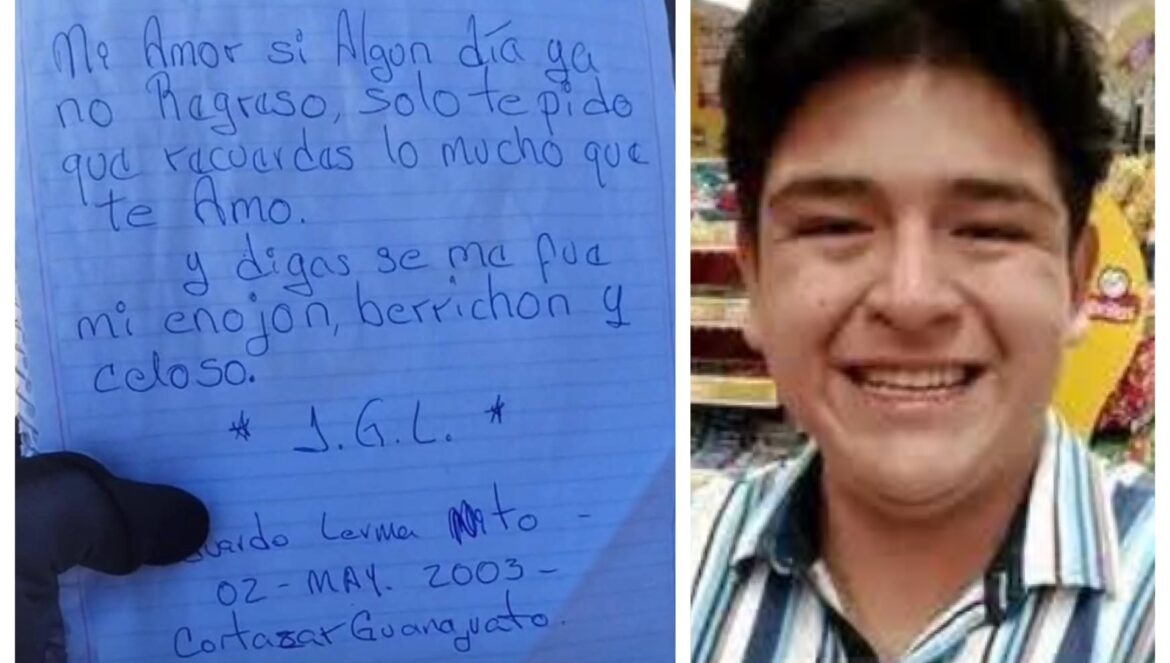 Mi Amor si Algon día ya
no Regreso, solo te pido
que recuerdes lo mucho que
te Amo.
y digas se me fue
mi enojon, berrichon y
celoso.
* J.G.L. *
uardo Lerma -
02 - MAY. 2003 -
Cortazar Guanajuato.